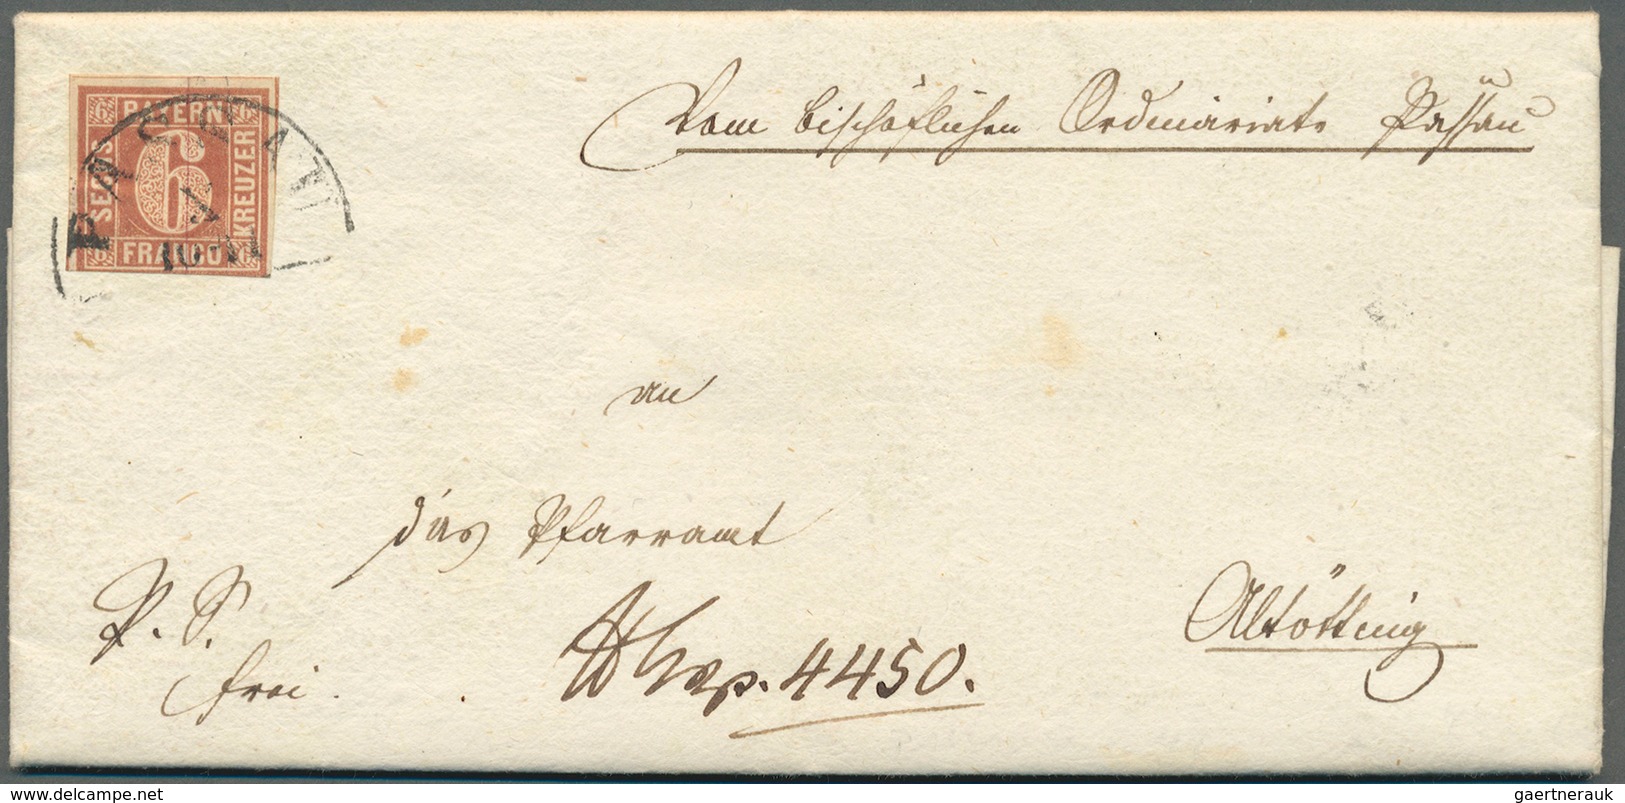 Vom bischöflichen Ordinariate Passau
6 BAYERN 6
SECHS
6
KREUZER
6 FRANCO 6
PASSAU
10-11
an
das Pfarramt
P. S.
frei.
Exp. 4450.
Altötting
www.delcampe.net
gaertnerauk